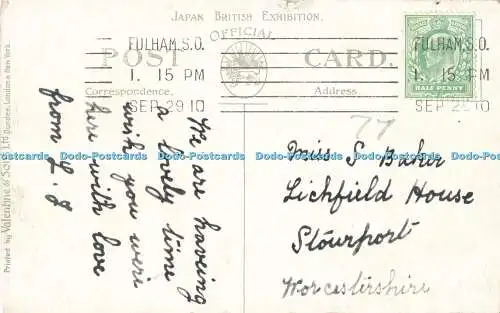 JAPAN BRITISH EXHIBITION.
OFFICIAL
POST CARD.
Correspondence.
Address.
FULHAM.S.O.
1. 15 PM
SEP 29 10
FULHAM,S.O.
1. 15 PM
SEP 29 10
HALF PENNY
77
We are haveing
a lovely time
wish you were
here with love
from L. J
Miss S Baker
Lichfield House
Stourport
Worcestirshire
Printed by Valentine & Sons Ltd Dundee, London & New York.
Dodo-Postcards Dodo-Postcards Dodo-Postcards Dodo-Postcards Dodo-Postcards Dodo-Postcards